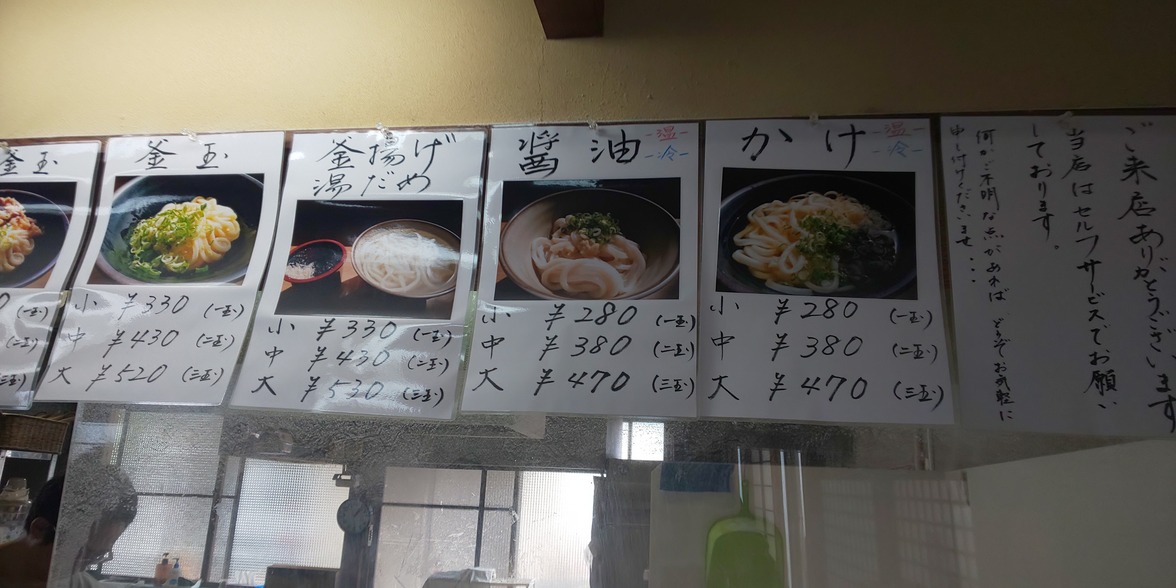 ご来店ありがとうございます
当店はセルフサービスでお願い
しております。
何かご不明な点があれば どうぞお気軽に
申し付けくださいませ・・・
かけ
-温-
-冷-
小 ¥280 (一玉)
中 ¥380 (二玉)
大 ¥470 (三玉)
醤油
-温-
-冷-
小 ¥280 (一玉)
中 ¥380 (二玉)
大 ¥470 (三玉)
釜揚げ
湯だめ
小 ¥330 (一玉)
中 ¥430 (二玉)
大 ¥530 (三玉)
釜玉
小 ¥330 (一玉)
中 ¥430 (二玉)
大 ¥520 (三玉)
釜玉
0 (一玉)
(二玉)
(三玉)